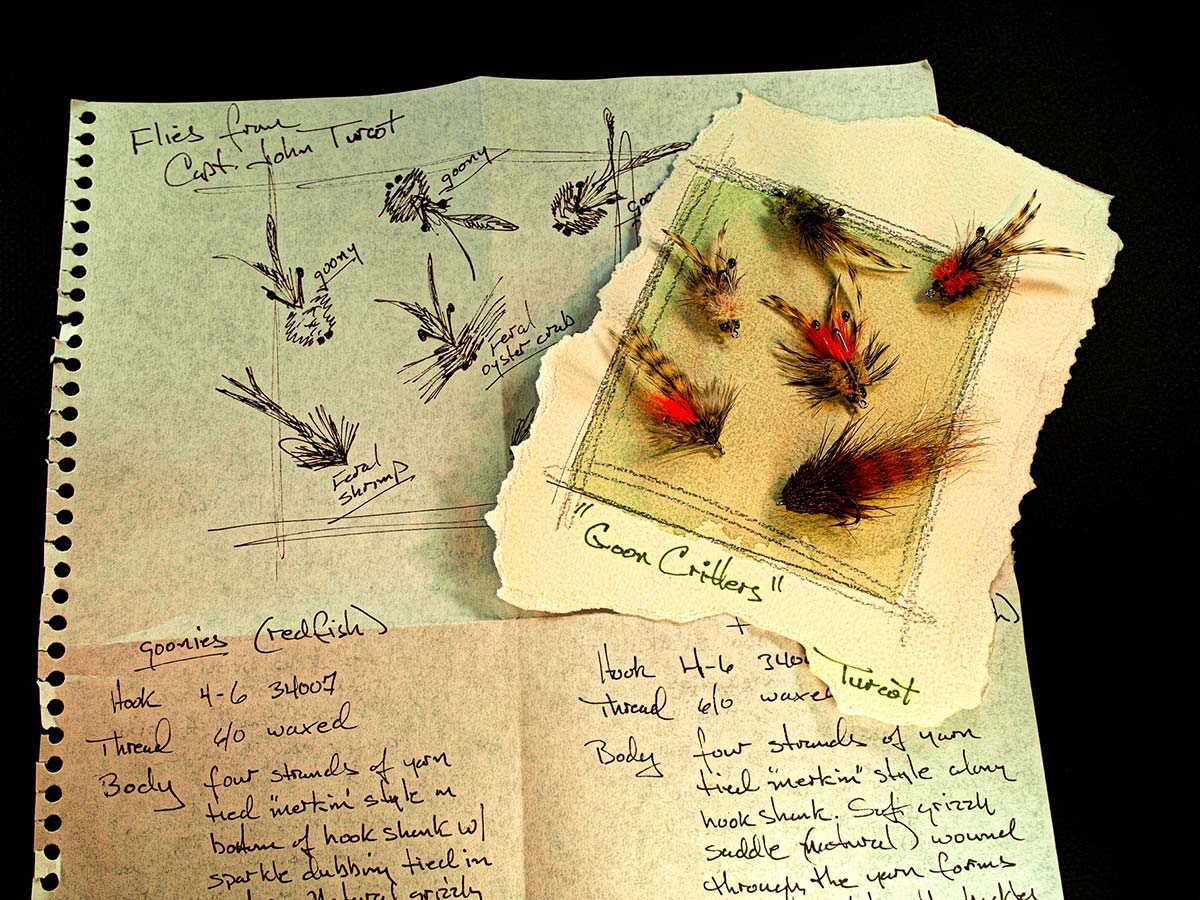 Flies from
Capt. John Turcot
goony
goo
goony
Feral
oyster crab
Feral
shrimp
"Goon Critters"
Turcot
goonies (redfish)
Hook 4-6 34007
Thread 6/0 waxed
Body four strands of yarn
tied "merkin" style on
bottom of hook shank w/
sparkle dubbing tied in
Natural grizzly
Hook 4-6 3400
Thread 6/0 waxed
Body four strands of yarn
tied "merkin" style along
hook shank. Soft grizzly
saddle (natural) wound
through, the yarn forms